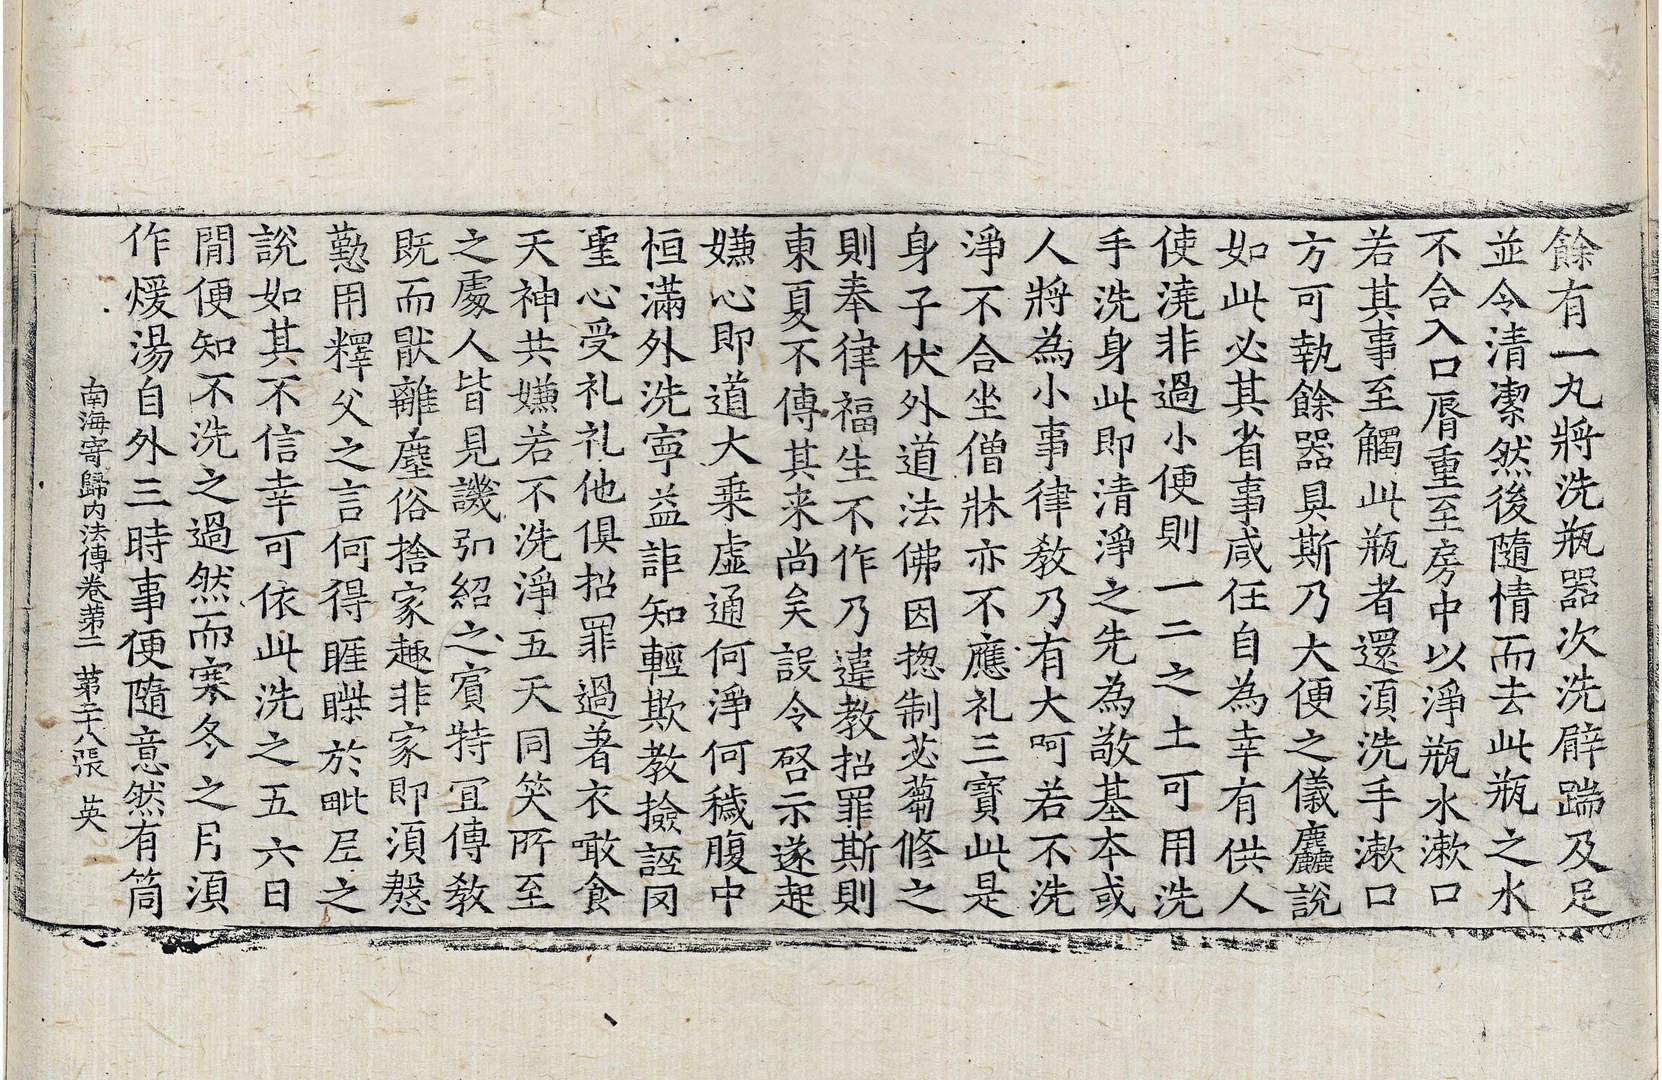 餘有一丸將洗瓶器次洗臂踹及足
並令清潔然後隨情而去此瓶之水
不合入口脣重至房中以淨瓶水漱口
若其事至觸此瓶者還須洗手漱口
方可執餘器具斯乃大便之儀麤說
如此必其省事咸任自為幸有供人
使澆非過小便則一二之土可用洗
手洗身此即清淨之先為敬基本或
人將為小事律教乃有大呵若不洗
淨不合坐僧牀亦不應礼三寶此是
身子伏外道法佛因揔制苾蒭修之
則奉律福生不作乃違教招罪斯則
東夏不傳其来尚矣設令啓示遂起
嫌心即道大乘虛通何淨何穢腹中
恒滿外洗寧益詎知輕欺教撿誣罔
聖心受礼礼他俱招罪過著衣噉食
天神共嫌若不洗淨五天同笑所至
之處人皆見譏弘紹之賓特冝傳教
既而猒離塵俗捨家趣非家即須慇
懃用釋父之言何得睚眦於毗尼之
說如其不信幸可依此洗之五六日
閒便知不洗之過然而寒冬之月須
作煖湯自外三時事便隨意然有筒
南海寄歸內法傳卷苐二 苐二十八張 英